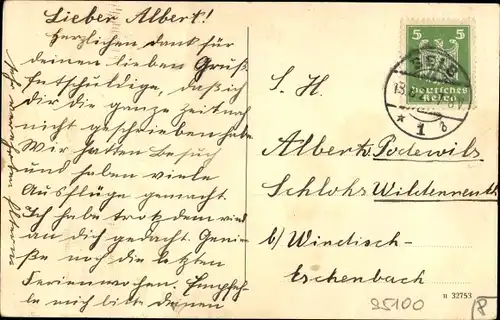 Lieber Albert!
Herzlichen dank für
deinen lieben Gruß.
Entschuldige, daß ich
dir die ganze zeit noch
nicht geschrieben habe
Wir hatten Besuch
und haben viele
Ausflüge gemacht.
Ich habe trotzdem viel
an dich gedacht. Genie-
ße noch die letzten
Ferienwochen. Empfeh-
le mich bitte deinen
5 5
Deutsches
Reich
* 1 b
S. H.
Albert v. Podewils
Schloß Wildenreuth
b/ Windisch-
Eschenbach
II 32753
95100
P